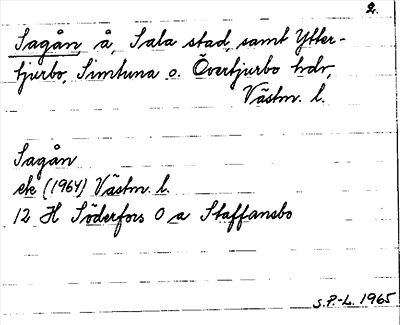 2.
Sagån, å, Sala stad, samt Ytter-
tjurbo, Simtuna o. Övertjurbo hdr,
Västm. l.
Sagån
ek (1964) Västm. l.
12 H Söderfors 0 a Staffansbo
S.P.-L. 1965